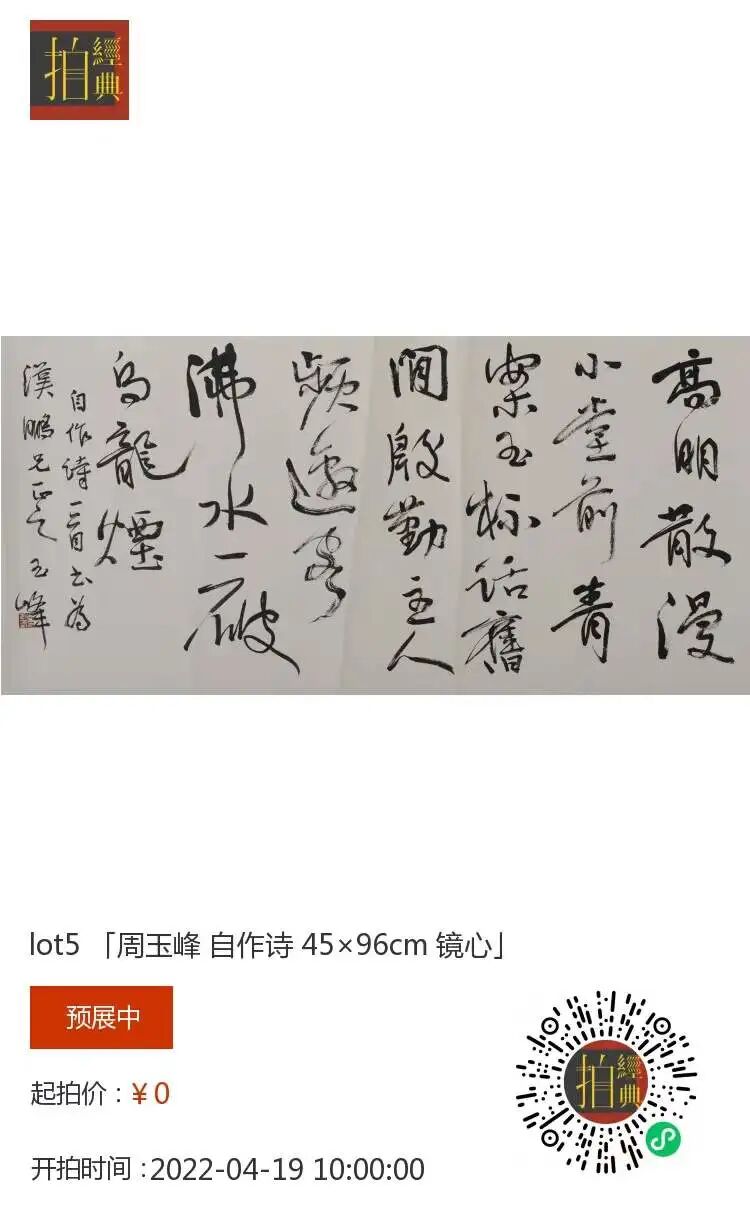 拍經典
高明散漫
小堂前青
案玉杯話舊
間殷勤主人
頻邀客
沸水一破
烏龍煙
自作詩一首書為
漢鵬兄正之 玉峰
lot5 「周玉峰 自作诗 45×96cm 镜心」
预展中
起拍价:¥0
开拍时间:2022-04-19 10:00:00
拍經典